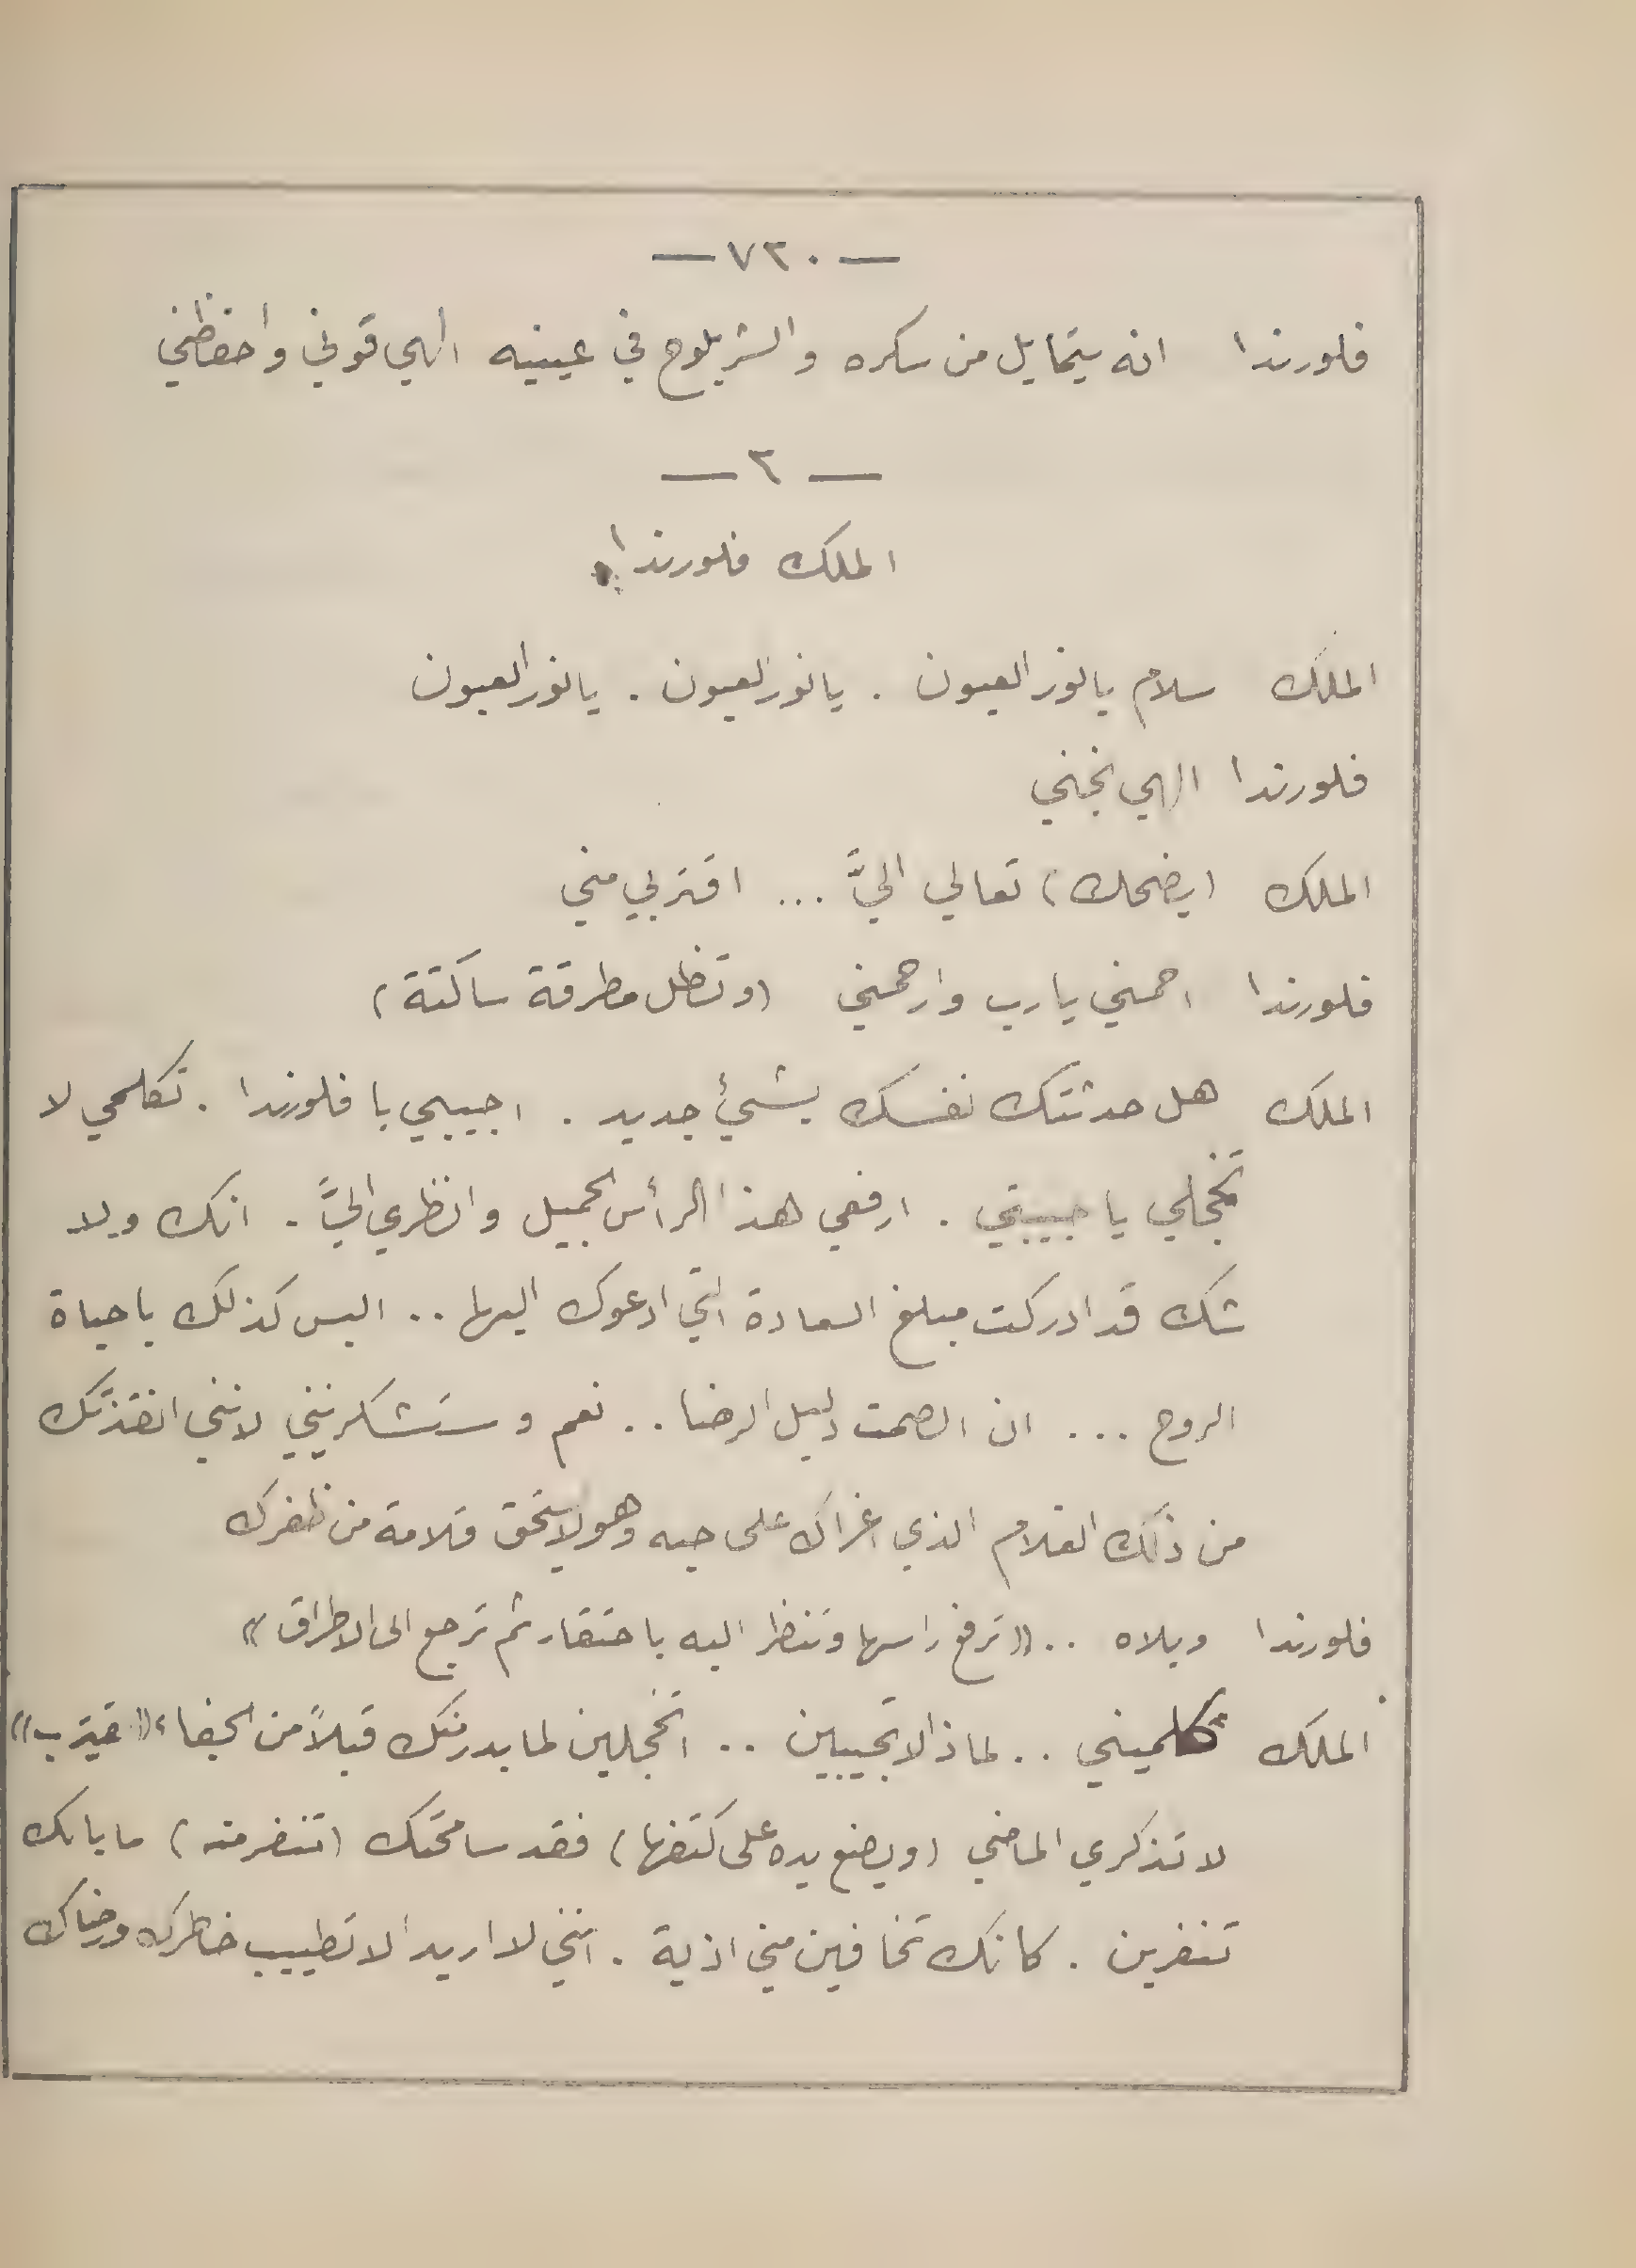 — ٧٣٠ —
فلورندا انه يتمايل من سكره والشر يلوح في عينيه الهي قوني واحفظني
— ٣ —
الملك فلورندا
الملك سلام يا نور العيون . يا نور العيون . يا نور العيون
فلورندا الهي نجني
الملك (يضحك) تعالي اليَّ ... اقتربي مني
فلورندا احمني يا رب وارحمني (وتظل مطرقة ساكتة)
الملك هل حدثتك نفسك بشيءٍ جديد . اجيبي يا فلورندا . تكلمي لا
تخجلي يا حبيبتي . ارفعي هذا الرأس الجميل وانظري اليَّ . انك ولا
شك قد ادركت مبلغ السعادة التي ادعوك اليها .. اليس كذلك يا حياة
الروح ... ان الصمت دليل الرضا .. نعم وستشكرينني لانني انقذتك
من ذلك الغلام الذي اغراك على حبه وهو لا يستحق قلامة من ظفرك
فلورندا ويلاه .. «ترفع راسها وتنظر اليه باحتقار ثم ترجع الى الاطراق»
الملك كلميني .. لماذا لا تجيبين .. اتخجلين لما بدر منك قبلاً من الجفاء «يقترب»
لا تذكري الماضي (ويضع يده على كتفها) فقد سامحتك (تنفر منه) ما بالك
تنفرين . كانك تخافين مني اذية . انني لا اريد الا تطييب خاطرك ورضاك